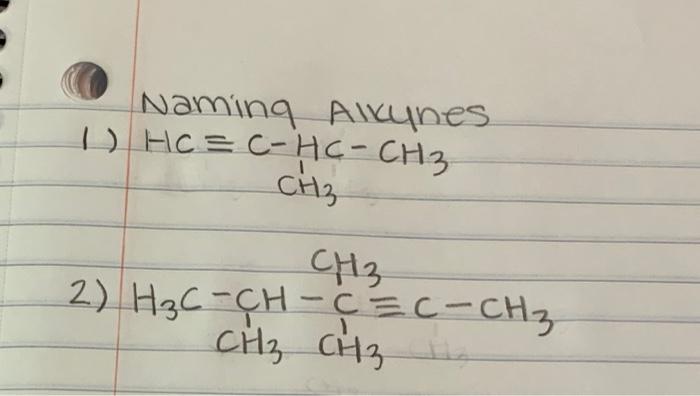 Naming Alkynes
1) HC≡C-HC-CH3
CH3
CH3
2) H3C-CH-C≡C-CH3
CH3 CH3